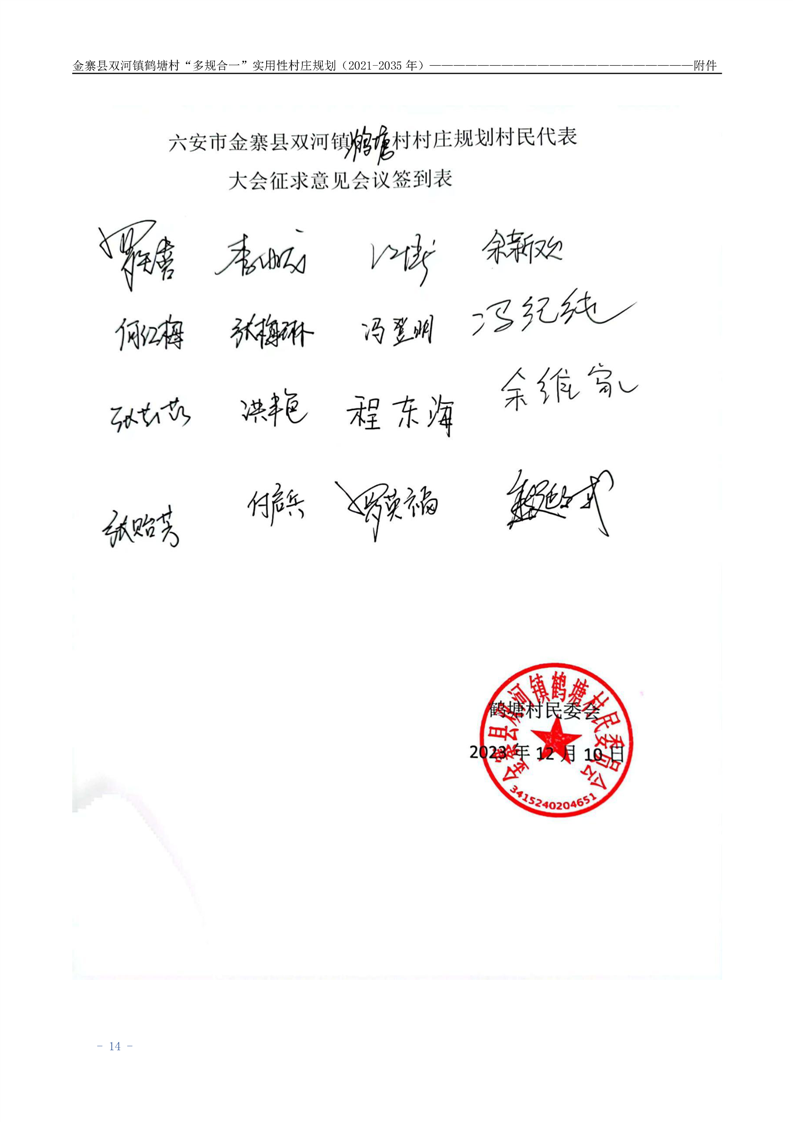 金寨县双河镇鹤塘村“多规合一”实用性村庄规划（2021-2035 年）——————————————————————附件
六安市金寨县双河镇鹤塘村村庄规划村民代表
大会征求意见会议签到表
余新欢
何红梅 张梅琳 冯登明 冯纪纯
洪丰色 程东海 余维家
张贻芳 付启兵 罗英福
鹤塘村民委会
2023 年 12 月 10 日
金寨县双河镇鹤塘村民委员会
3415240204651
- 14 -